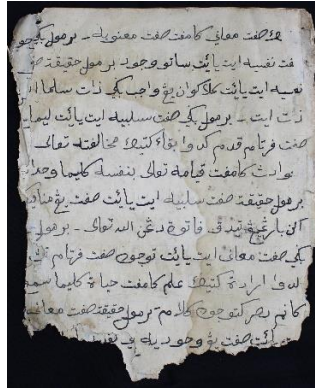 صفت معاني كامفت صفت معنويه ـ برمول بݢي
فت نفسيه ايت يائيت ساتو وجود برمول حقيقة
نفسيه ايت يائيت كلاكوان يڠ واجب بݢي ذات سلما
ذات ايت ـ برمول بݢي صفت سلبيه ايت يائيت ليما
صفت فرتام قدم كدوا بقاء كتيݢ مخالفته تعالى
حوادث كامفت قيامه تعالى بنفسه كليما وحدا
برمول حقيقة صفت سلبيه ايت يائيت صفت يڠ منافي
اكن بارڠ يڠ تيدق فاتوة دڠن الله تعالى ـ برمول
بݢي صفت معاني ايت يائيت توجوه صفت فرتام
كدوا ارادة كتيݢ علم كامفت حياة كليما سمع
كانم بصر كتوجوه كلام برمول حقيقة صفت معاني
يائيت صفت يڠ وجوديه